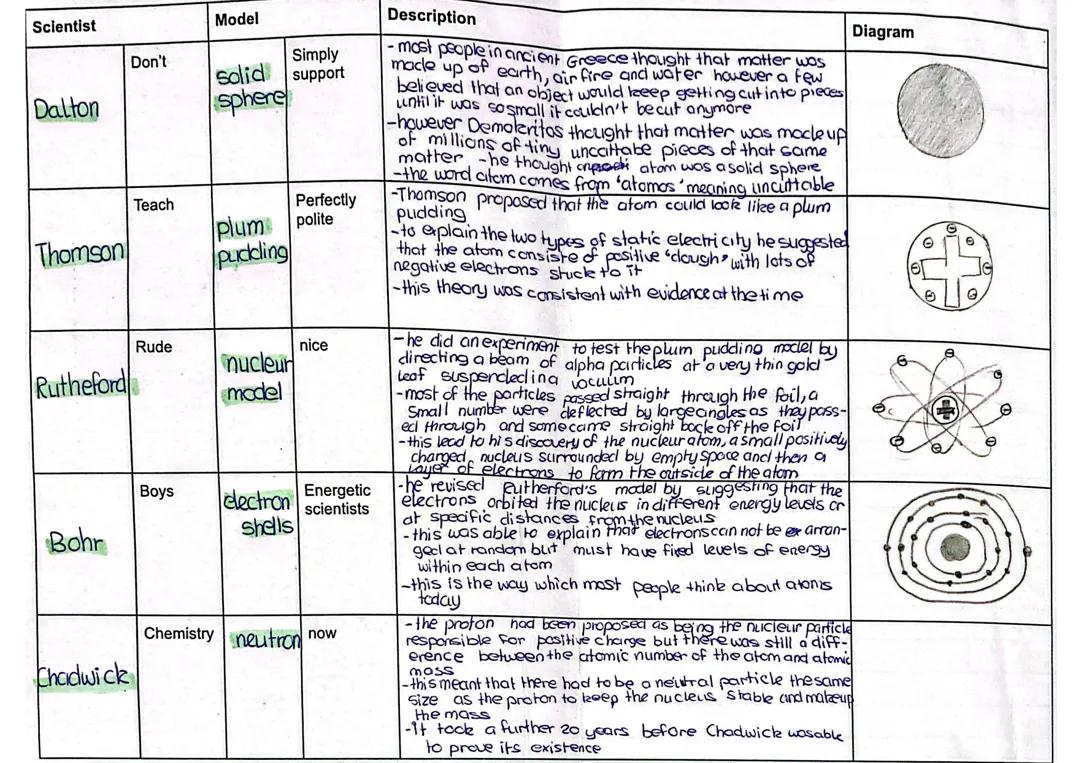 Scientist
Model
Description
Diagram
Dalton
Don't
solid
sphere
Simply
support
- most people in ancient Greece thought that matter was
made up of earth, air fire and water however a few
believed that an object would keep getting cut into pieces
until it was so small it couldn't be cut anymore
- however Demokritos thought that matter was made up
of millions of tiny uncuttable pieces of that same
matter - he thought atom was a solid sphere
- the word atom comes from 'atomos' meaning uncuttable
Thomson
Teach
plum
pudding
Perfectly
polite
- Thomson proposed that the atom could look like a plum
pudding
- to explain the two types of static electricity he suggested
that the atom consists of positive 'dough' with lots of
negative electrons stuck to it
- this theory was consistent with evidence at the time
Rutheford
Rude
nucleur
model
nice
- he did an experiment to test the plum pudding model by
directing a beam of alpha particles at a very thin gold
leaf suspended in a vacuum
- most of the particles passed straight through the foil, a
small number were deflected by large angles as they pass-
ed through and some came straight back off the foil
- this lead to his discovery of the nucleur atom, a small positively
charged, nucleus surrounded by empty space and then a
layer of electrons to form the outside of the atom
Bohr
Boys
electron
shells
Energetic
scientists
- he revised Rutherford's model by suggesting that the
electrons orbited the nucleus in different energy levels or
at specific distances from the nucleus
- this was able to explain that electrons can not be arran-
ged at random but must have fixed levels of energy
within each atom
- this is the way which most people think about atoms
today
Chadwick
Chemistry
neutron
now
- the proton had been proposed as being the nucleur particle
responsible for positive charge but there was still a diff-
erence between the atomic number of the atom and atomic
mass
- this meant that there had to be a neutral particle the same
size as the proton to keep the nucleus stable and makeup
the mass
- it took a further 20 years before Chadwick was able
to prove its existence